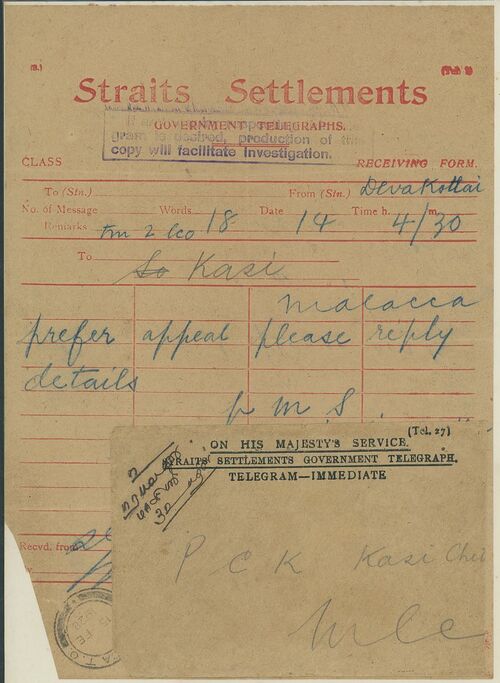 Straits Settlements
GOVERNMENT TELEGRAPHS.
gram is desired, production of this
copy will facilitate Investigation.
CLASS RECEIVING FORM.
To (Stn.) From (Stn.) Devakottai
No. of Message Words 18 Date 14 Time h. 4/30 m.
Remarks
To Kasi
malacca
prefer appeal please reply
details
P M S.
(Tel. 27)
ON HIS MAJESTY'S SERVICE.
STRAITS SETTLEMENTS GOVERNMENT TELEGRAPH.
TELEGRAM—IMMEDIATE
Recvd. from
P C K Kasi